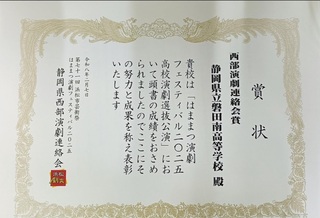 賞状
西部演劇連絡会賞
静岡県立磐田南高等学校 殿
貴校は「はままつ演劇
フェスティバル二〇二五
高校演劇選抜公演」にお
いて頭書の成績をおさめ
られましたのでここにそ
の努力と成果を称え表彰
いたします
令和八年二月七日
第七十一回 浜松市芸術祭
はままつ演劇フェスティバル二〇二五
静岡県西部演劇連絡会